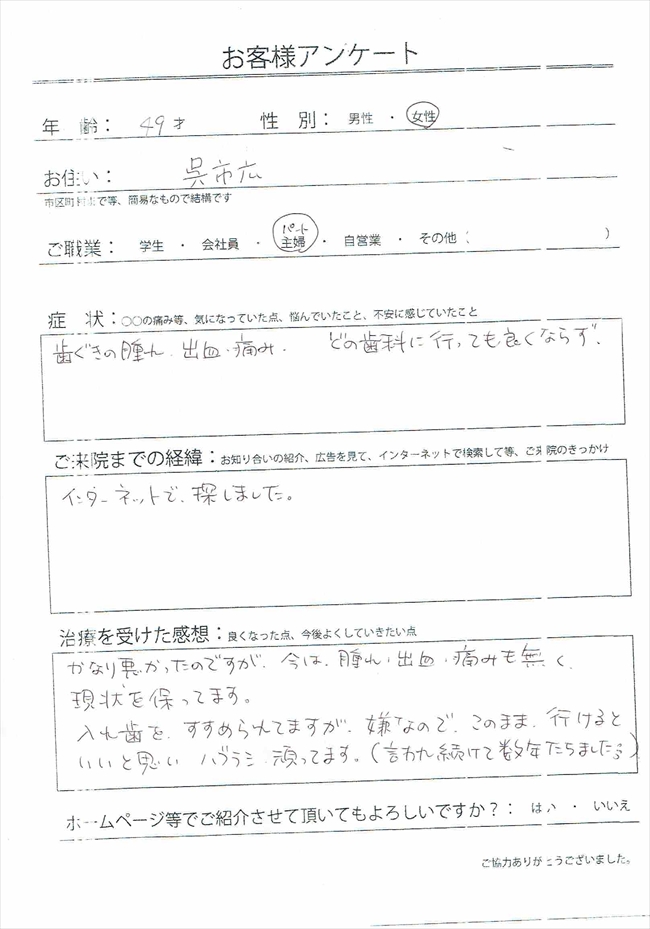 お客様アンケート
年 齢： 49才 性 別： 男性 ・ 女性
お住い： 呉市広
市区町村まで等、簡易なもので結構です
パート
ご職業： 学生 ・ 会社員 ・ 主婦 ・ 自営業 ・ その他（ ）
症 状：○○の痛み等、気になっていた点、悩んでいたこと、不安に感じていたこと
歯ぐきの腫れ、出血、痛み、 どの歯科に行っても良くならず、
ご来院までの経緯：お知り合いの紹介、広告を見て、インターネットで検索して等、ご来院のきっかけ
インターネットで、探しました。
治療を受けた感想：良くなった点、今後よくしていきたい点
かなり悪かったのですが、今は、腫れ・出血・痛みも無く、
現状を保ってます。
入れ歯を、すすめられてますが、嫌なので、このまま、行けると
いいと思い ハブラシ 頑ってます。（言われ続けて数年たちました
ホームページ等でご紹介させて頂いてもよろしいですか？： はい ・ いいえ
ご協力ありがとうございました。